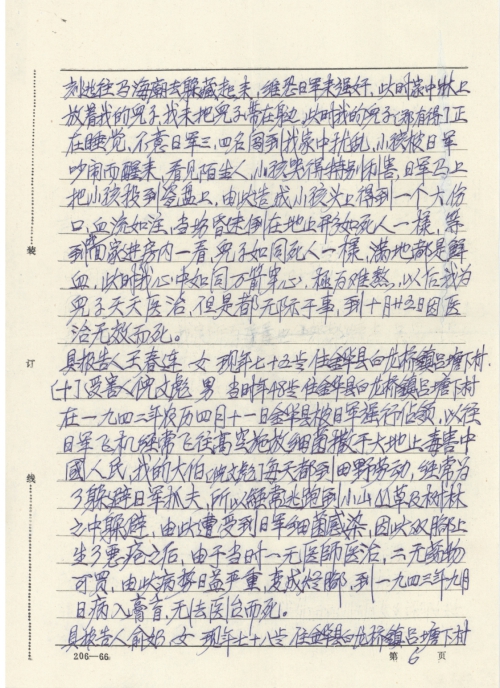 刻逃往马海荫去躲藏起来,维恐日军来强奸,此时家中床上
放着我的儿子,我未把儿子带在身边,此时我的儿子(那有得)正
在睡觉,不意日军三、四名闯到我家中扰乱,小孩被日军
吵闹而醒来,看见陌生人,小孩哭得特别利害,日军马上
把小孩投到瓷盘上,由此告成小孩头上得到一个大伤
口,血流如注,当场昏迷倒在地上形如死人一様,等
到回家进房内一看,儿子如同死人一様,满地都是鲜
血,此时我心中如同万箭穿心,极为难熬,以后我为
儿子天天医治,但是都无际于事,到十月廿五日因医
治无效而死。
具报告人王春连 女 现年七十五岁 住金华县白龙桥镇吕塘下村.
(十)受害人倪文彪 男 当时年48岁 住金华县白龙桥镇吕塘下村
在一九四二年农历四月十一日金华县被日军强行佔领,以後
日军飞机经常飞往高空施放细菌撒于大地上毒害中
國人民,我的大伯(倪文彪)每天都到田野劳动,经常为
了躲避日军抓夫,所以经常逃跑到小山山草及树林
之中躲避,由此遭受到日军细菌感染,因此双脚上
生了悪疮之后,由于当时一无医師医治,二无药物
可买,由此病势日益严重,变成烂脚,到一九四三年九月
日病入膏肓,无法医治而死。
具报告人俞奶 女 现年七十八岁 住金华县白龙桥镇吕塘下村
装
订
线
206—66
第 6 页